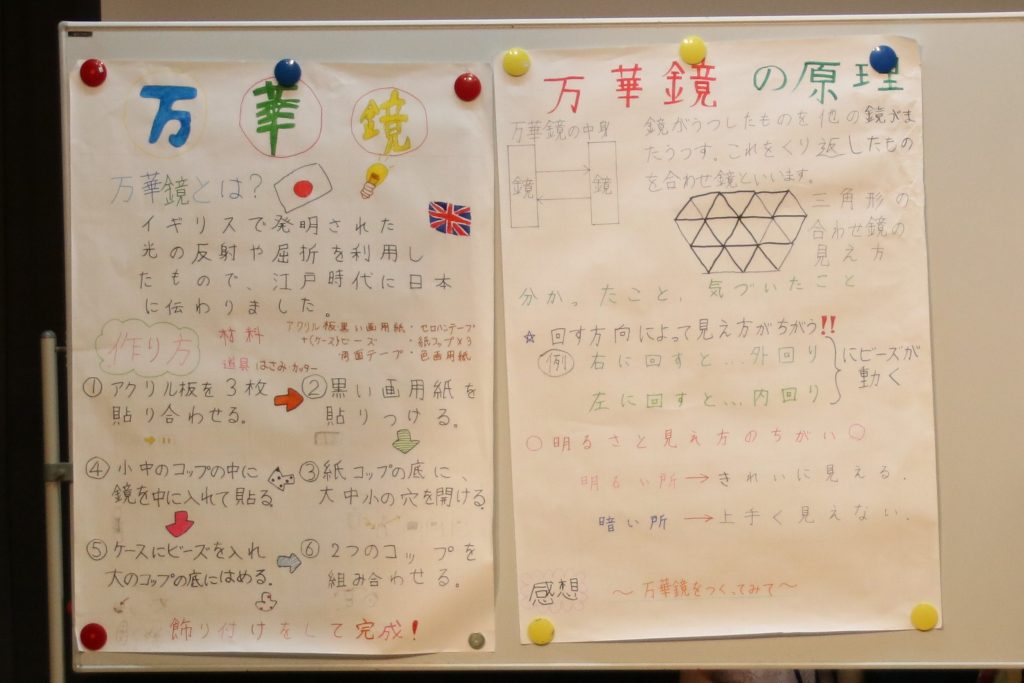 万華鏡
万華鏡とは?
イギリスで発明された
光の反射や屈折を利用し
たもので、江戸時代に日本
に伝わりました。
作り方
材料
アクリル板・黒い画用紙・セロハンテープ
+(ケース)ビーズ・紙コップ×3
両面テープ・色画用紙
道具 はさみ・カッター
①アクリル板を3枚
貼り合わせる。
②黒い画用紙を
貼りつける。
③紙コップの底に、
大中小の穴を開ける。
④小中のコップの中に
鏡を中に入れて貼る。
⑤ケースにビーズを入れ
大のコップの底にはめる。
⑥2つのコップを
組み合わせる。
飾り付けをして完成!
万華鏡の原理
万華鏡の中身
鏡
鏡
鏡がうつしたものを他の鏡がま
たうつす。これをくり返したもの
を合わせ鏡といいます。
三角形の
合わせ鏡の
見え方
分かったこと、気づいたこと
☆回す方向によって見え方がちがう!!
例 右に回すと…外回り
左に回すと…内回り
にビーズが
動く
○明るさと見え方のちがい○
明るい所→きれいに見える.
暗い所→上手く見えない.
感想 ~万華鏡をつくってみて~